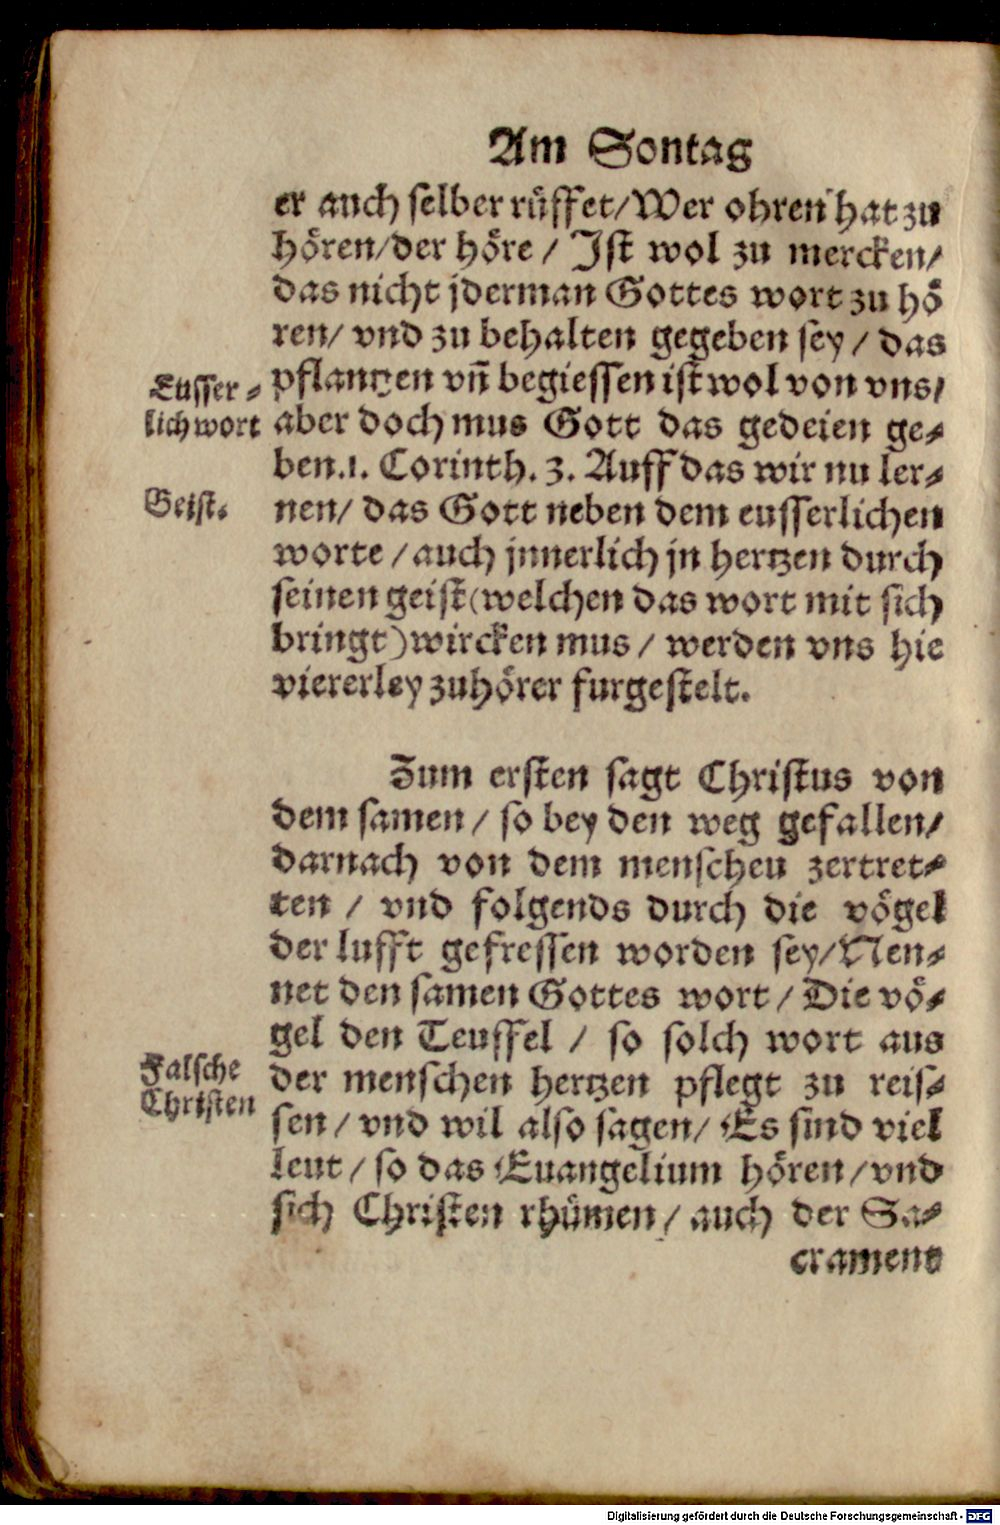 Am Sontag
er auch selber rüffet/Wer ohren hat zu
hören/der höre / Jst wol zu mercken/
das nicht jderman Gottes wort zu hö
ren/ vnd zu behalten gegeben sey / das
pflantzen vñ begiessen ist wol von vns/
Eusser⸗
lich wort
aber doch mus Gott das gedeien ge⸗
ben.1. Corinth. 3. Auff das wir nu ler⸗
Geist.
nen/ das Gott neben dem eusserlichen
worte / auch jnnerlich jn hertzen durch
seinen geist(welchen das wort mit sich
bringt)wircken mus / werden vns hie
viererley zuhörer furgestelt.
Zum ersten sagt Christus von
dem samen / so bey den weg gefallen/
darnach von dem menschen zertret⸗
ten / vnd folgends durch die vögel
der lufft gefressen worden sey/Nen⸗
net den samen Gottes wort / Die vö⸗
gel den Teuffel / so solch wort aus
Falsche
Christen
der menschen hertzen pflegt zu reis⸗
sen / vnd wil also sagen/ Es sind viel
leut / so das Euangelium hören /vnd
sich Christen rhümen / auch der Sa⸗
crament
Digitalisierung gefördert durch die Deutsche Forschungsgemeinschaft - DFG